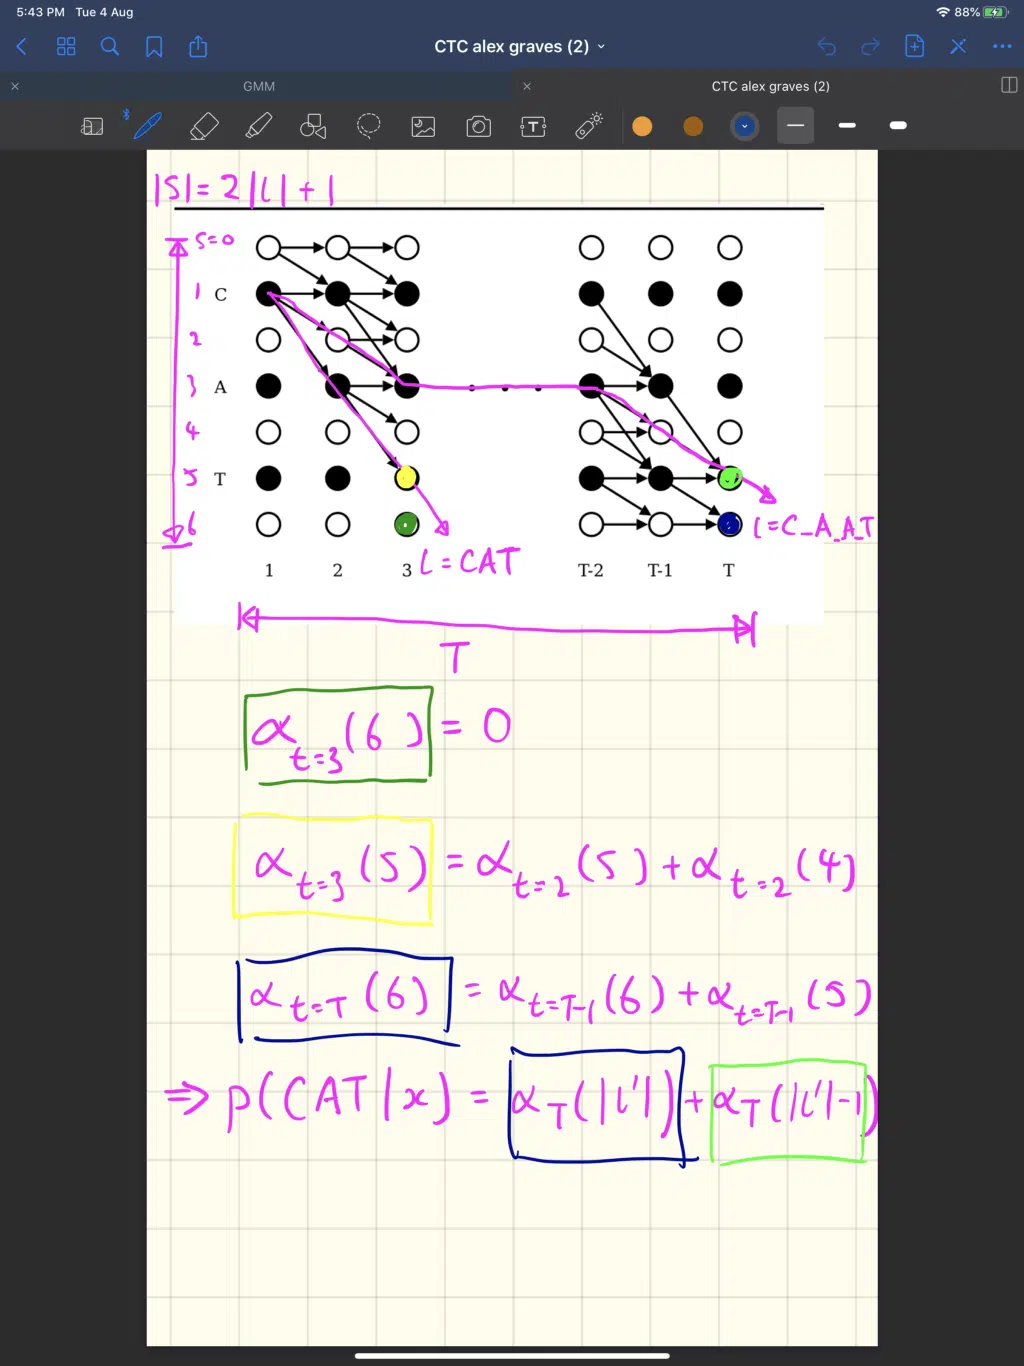 5:43 PM Tue 4 Aug 88%
CTC alex graves (2)
GMM CTC alex graves (2)
T
|S| = 2|l| + 1
S=0
1 C
2
3 A
4
5 T
6
l = C_A_A_T
l = CAT
1 2 3 T-2 T-1 T
T
α t=3 (6) = 0
α t=3 (5) = α t=2 (5) + α t=2 (4)
α t=T (6) = α t=T-1 (6) + α t=T-1 (5)
⇒ p(CAT|x) = α T (|l'|) + α T (|l'|-1)